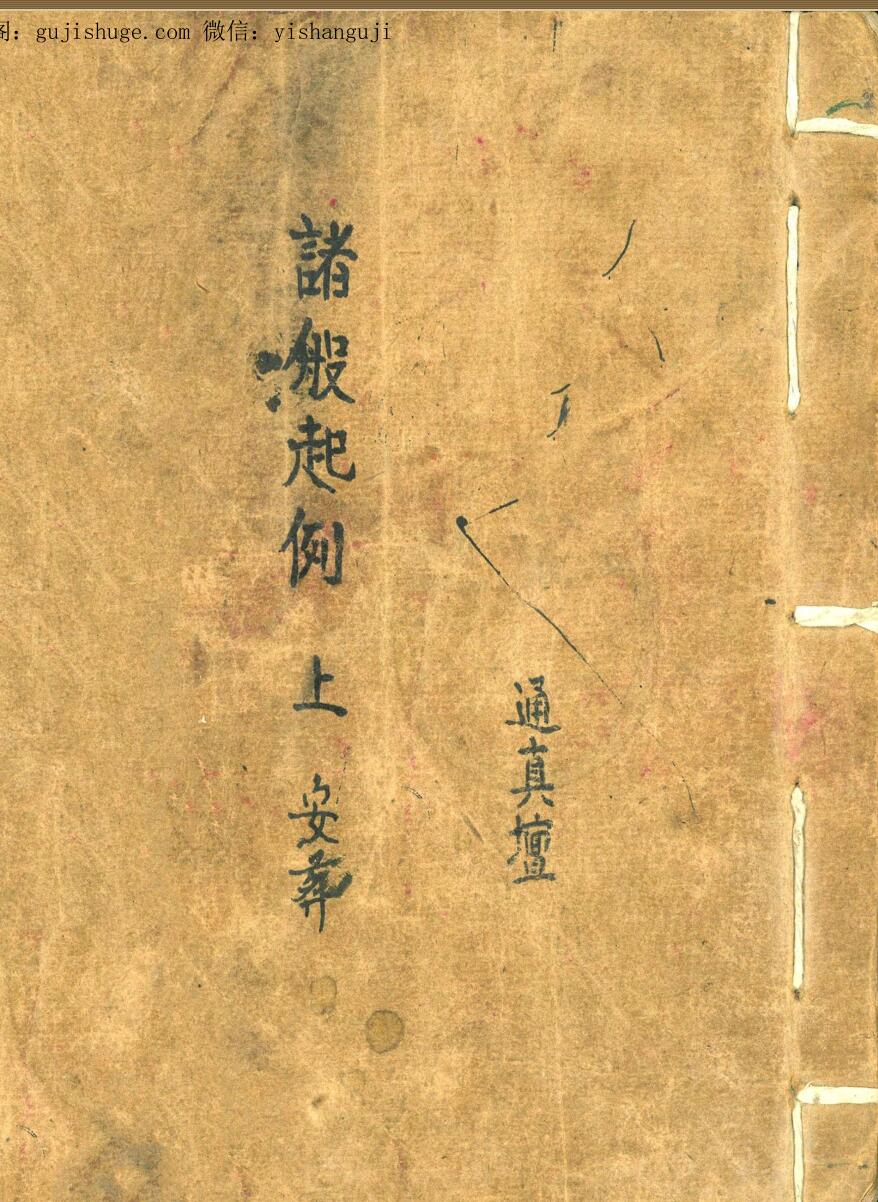 阁：gujishuge.com 微信：yishanguji
通真壇
諸般起例 上 安葬